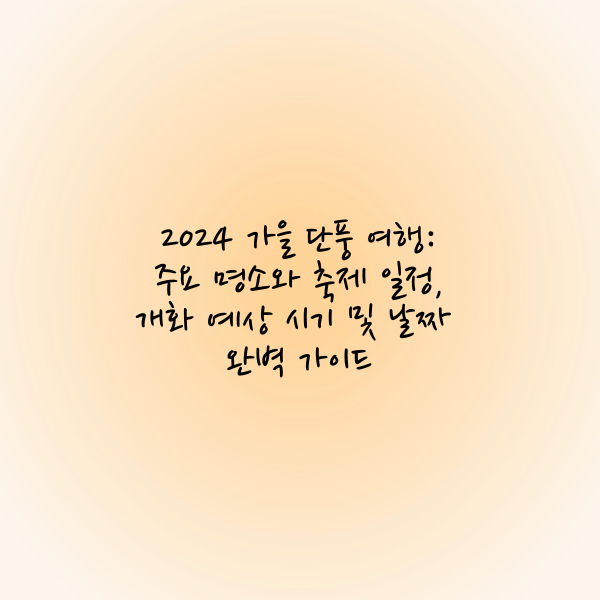 2024 가을 단풍 여행:
주요 명소와 축제 일정,
개화 예상 시기 및 날짜
완벽 가이드